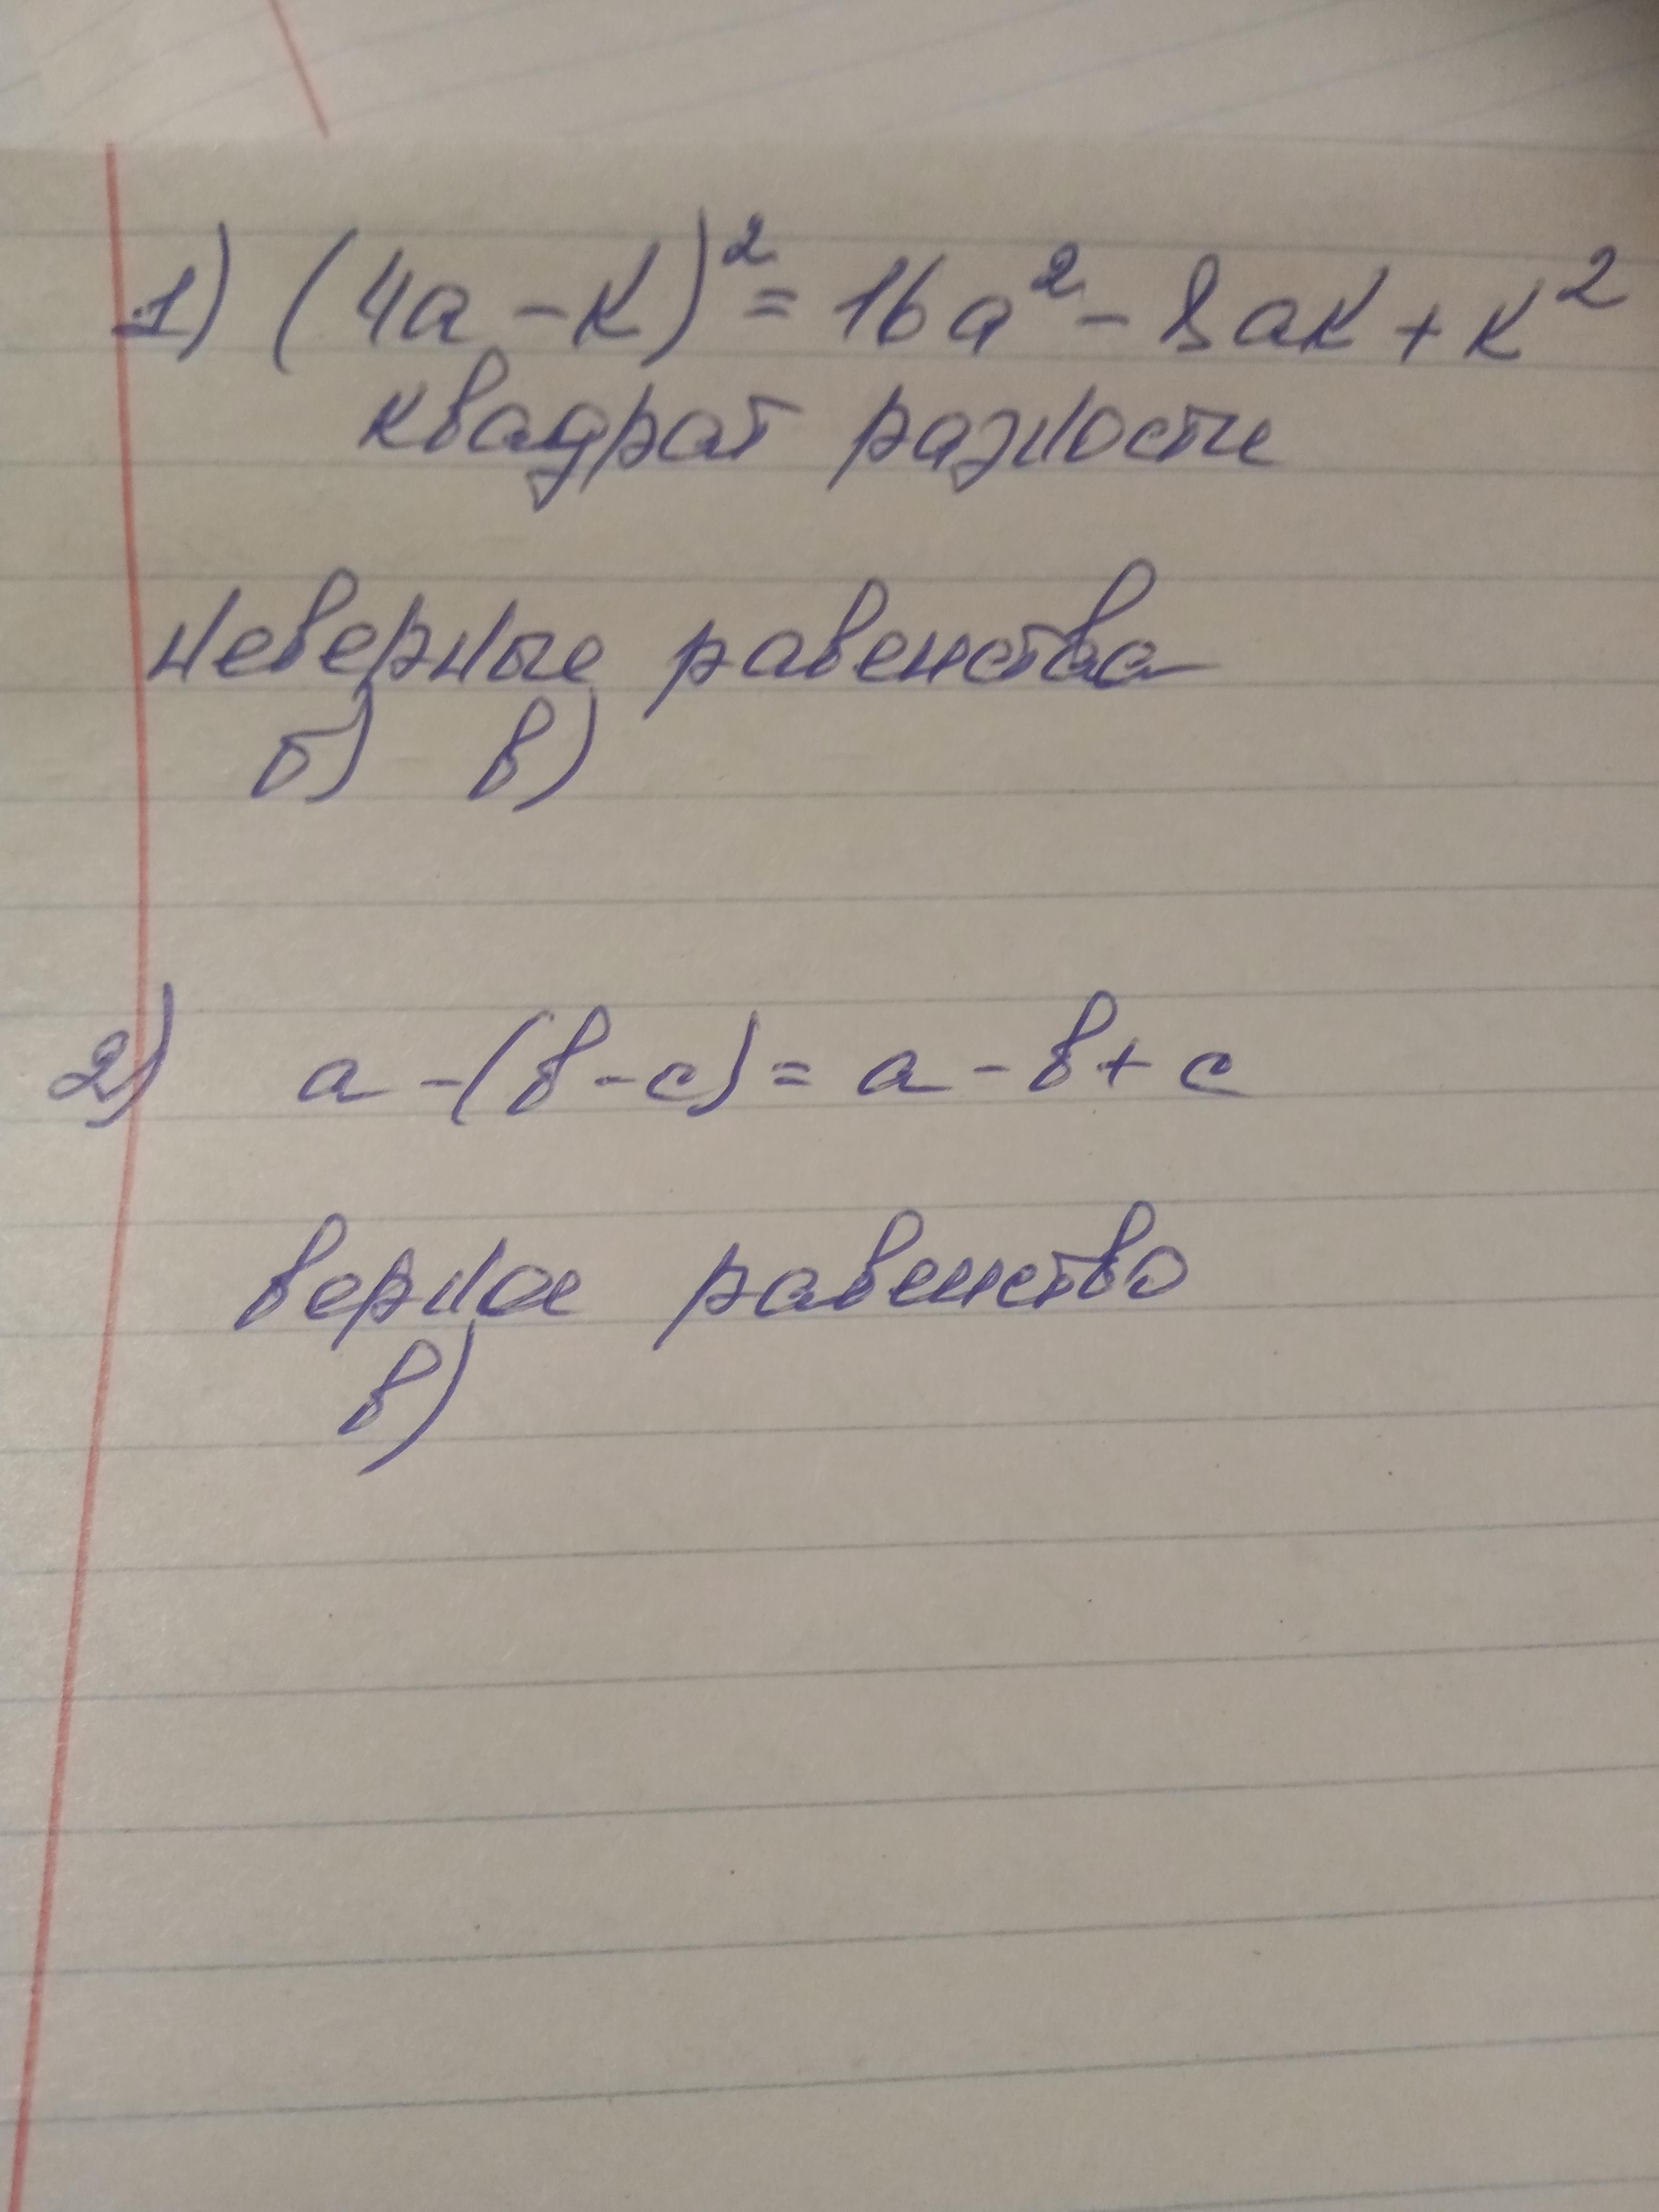 1) (4а - к)² = 16а² - 8ак + к²
квадрат разности
неверные равенства
б) в)
2) а - (в - с) = а - в + с
верное равенство
в)